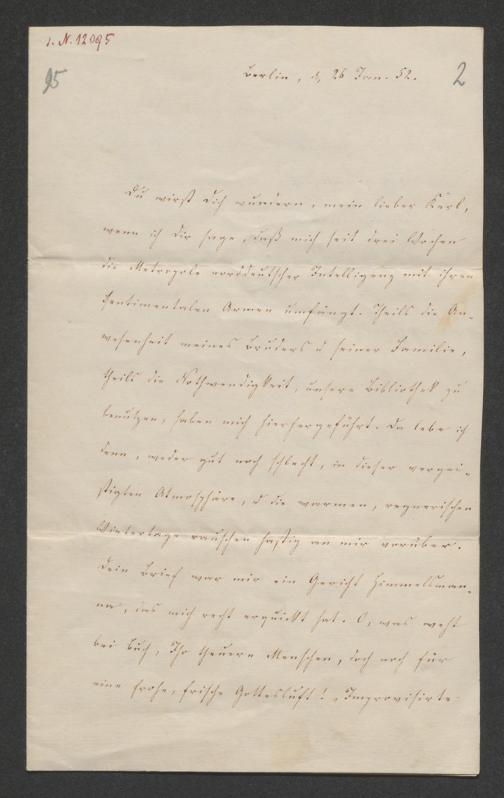 I. N. 12095
95
2
Berlin, d. 26 Jan. 52.
Du wirst Dich wundern, mein lieber Karl,
wenn ich Dir sage, daß mich seit drei Wochen
die Metropole norddeutscher Intelligenz mit ihren
sentimentalen Armen umfängt. Theils die An-
wesenheit meines Bruders u seiner Familie,
theils die Nothwendigkeit, unsere Bibliothek zu
benutzen, haben mich hierhergeführt. Da lebe ich
denn, weder gut noch schlecht, in dieser vergei-
stigten Atmosphäre, u die warmen, regnerischen
Wintertage rauschen hastig an mir vorüber.
Dein Brief war mir ein Gericht Himmelsman-
na, das mich recht erquickt hat. O, was weht
bei Euch, Ihr theuern Menschen, doch noch für
eine frohe, frische Gottesluft! Improvisirte